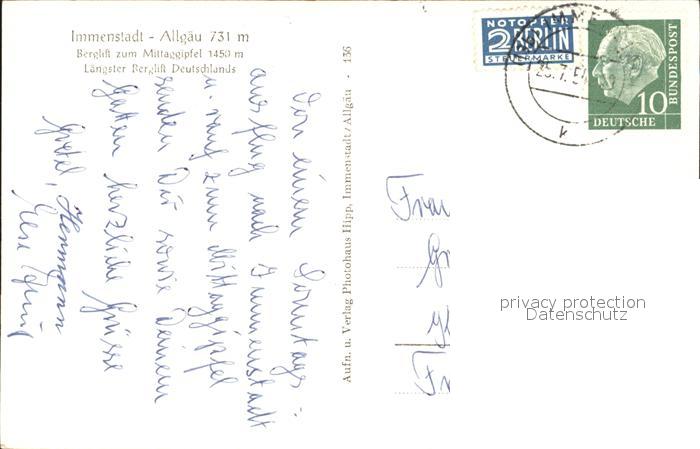 Immenstadt - Allgäu 731 m
Berglift zum Mittaggipfel 1450 m
Längster Berglift Deutschlands
Von einem Sonntags-
ausflug nach Immenstadt
u. rauf zum Mittaggipfel
senden Dir sowie Deinem
Gatten herzliche Grüsse
Gretel, Hermann
Aufn. u. Verlag Photohaus Hipp, Immenstadt/Allgäu - 136
NOTOPFER
2 BERLIN
STEUERMARKE
25.7.5
k
10
DEUTSCHE
BUNDESPOST
Frau
privacy protection
Datenschutz